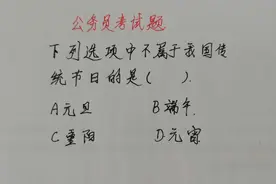 公务员考试题
下列选项中不属于我国传
统节日的是（　）.
A元旦　B端午.
C.重阳　D.元宵